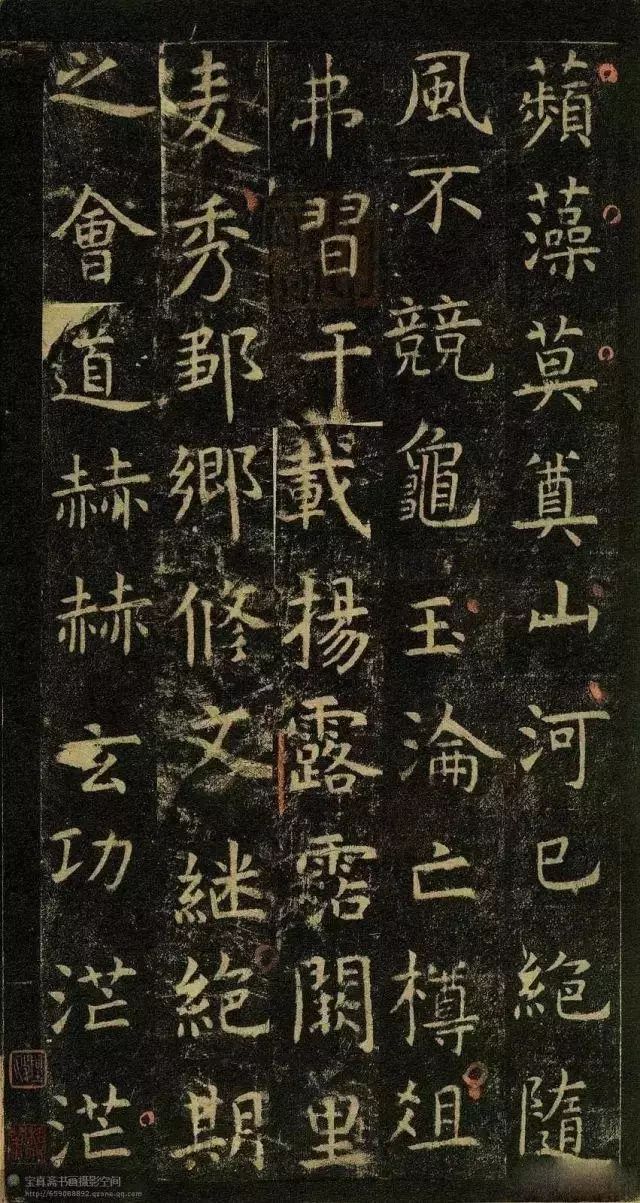 蘋藻莫奠山河已絕隨
風不競龜玉淪亡樽俎
弗習干載揚露霑闕里
麦秀鄒鄉修文継絕期
之會道赫赫玄功茫茫
宝真斋书画摄影空间
http://659088892.qzone.qq.com